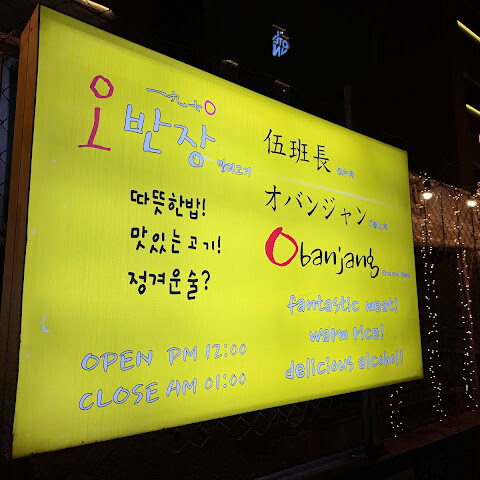 오반장
따뜻한밥!
맛있는고기!
정겨운술?
OPEN PM 12:00
CLOSE AM 01:00
伍班長
オバンジャン
Obanjang
fantastic meat!
warm rice!
delicious alcohol!